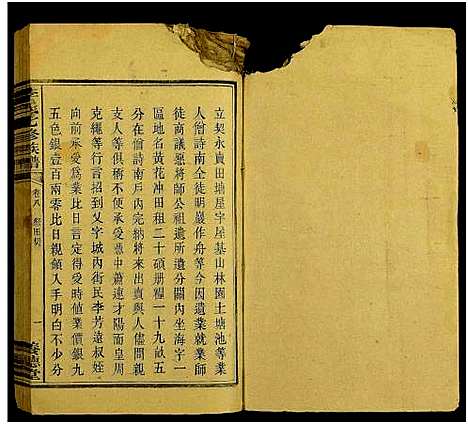 立契永賣田塘屋宇屋基山林園土塘池等業
人僧詩南全徒明巖作舟等今因遺業就業
徒商議愿將師公祖遺所遺分關內坐海字一
區地名黃花冲田租二十碩册糧一十九畝五
分在僧詩南戶內完納將來出賣與人儘問親
人等俱稱不便承受憑中蕭遠才陽面皇周
克繩等行言招到父字城內街民李芳遠叔姪
向前承受為業比日言定得受時值業價銀九
五色銀壹百兩零比日親領入手明白不少分
修族譜
卷八
一